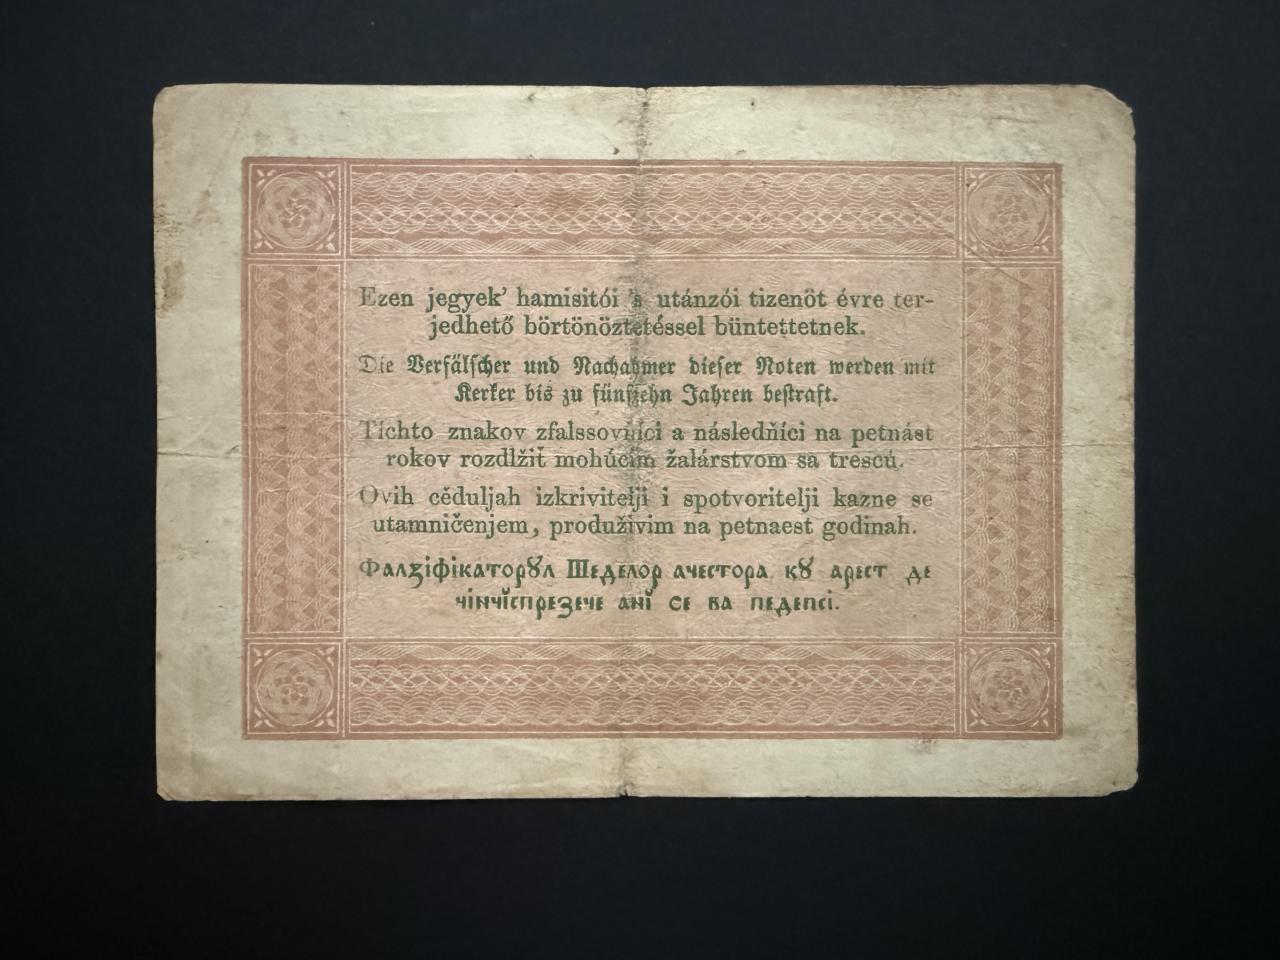 Ezen jegyek’ hamisitói ’s utánzói tizenöt évre ter-
jedhető börtönöztetéssel büntettetnek.
Die Verfälscher und Nachahmer dieser Noten werden mit
Kerker bis zu fünfzehn Jahren bestraft.
Tíchto znakov zfalssovníci a následňíci na petnást
rokov rozdlžiť mohúcím žalárstvom sa trescú.
Ovih cěduljah izkrivitelji i spotvoritelji kazne se
utamničenjem, produživim na petnaest godinah.
Фалꙁіфікаторꙋл Шеделор ачестора кꙋ арест де
чінчĭспреꙁече анĭ се ва педепсі.